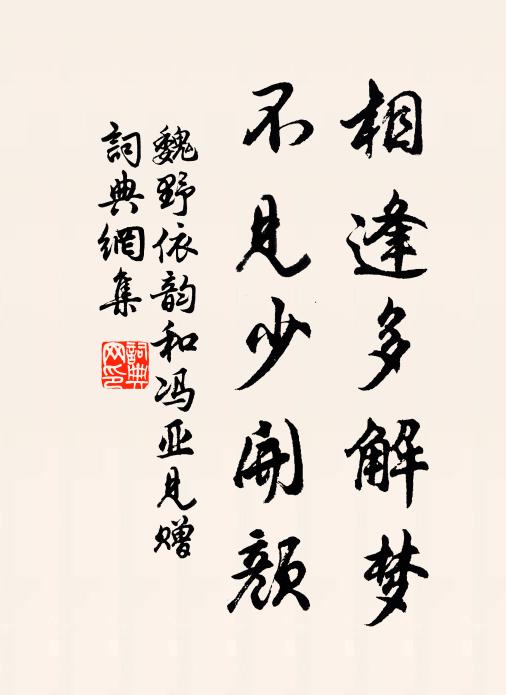 相逢多解梦
不见少開颜
魏野依韵和冯亚见赠
詞典網集
詞典
网印